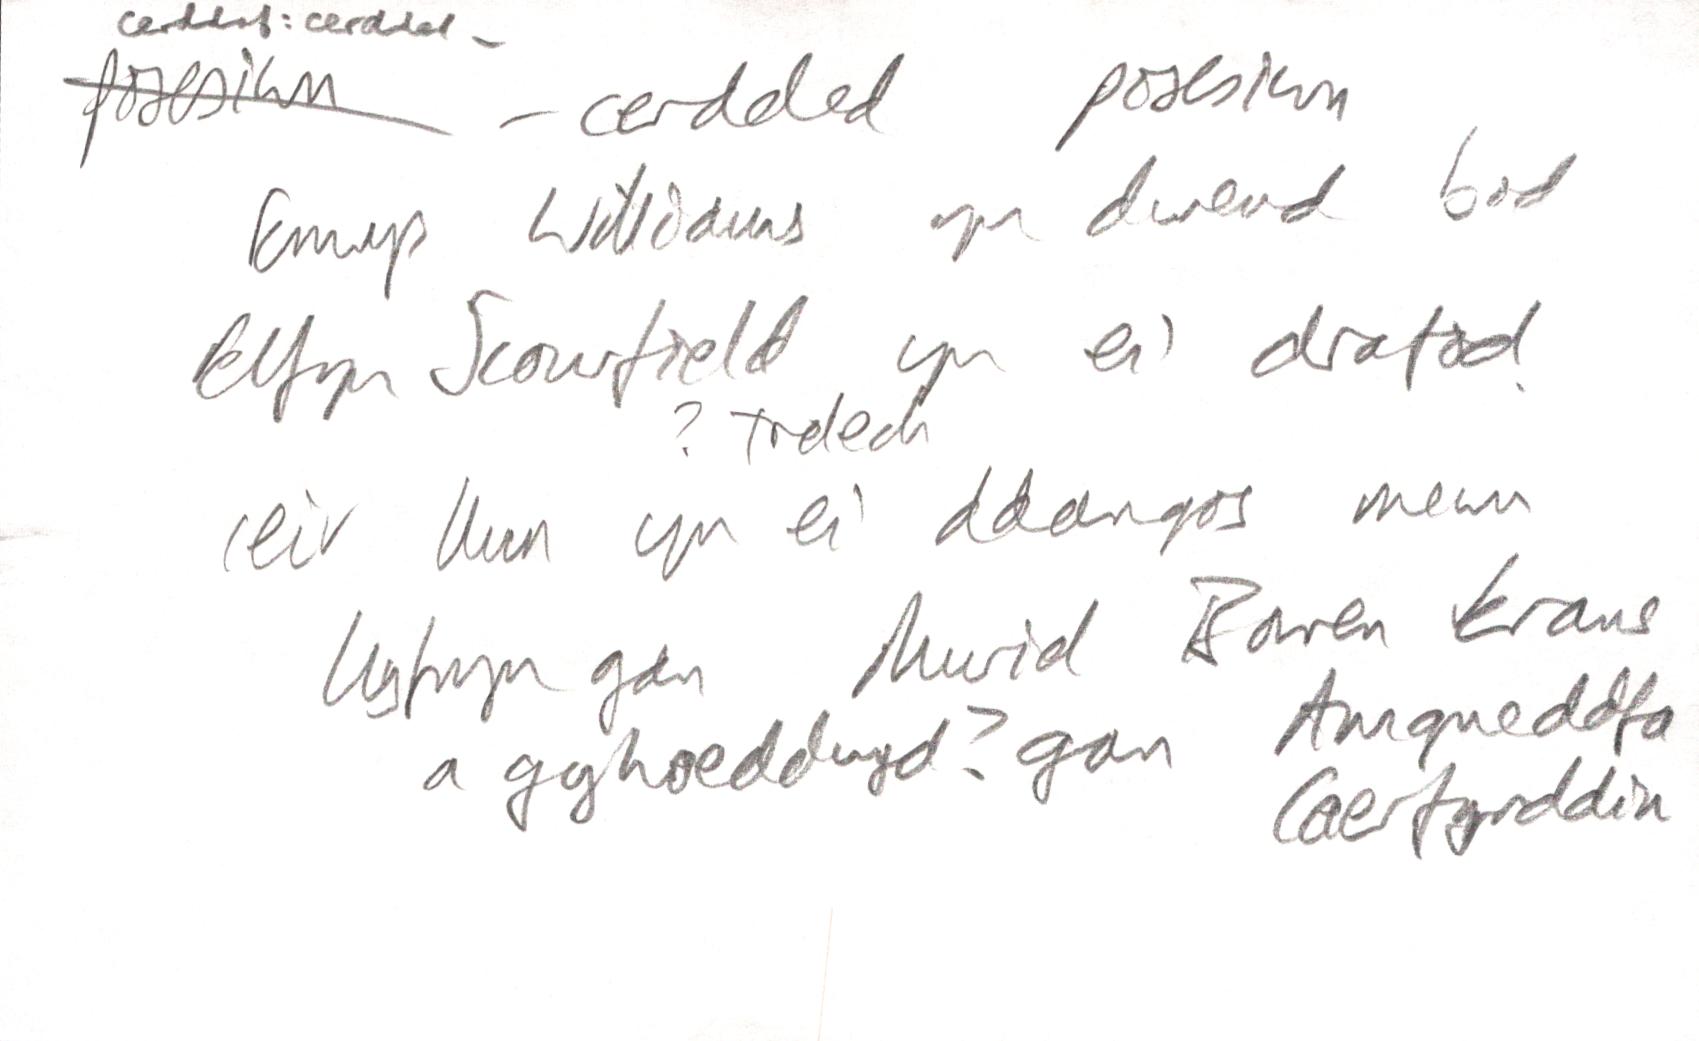 cerddaf: cerdded -
posesiwn - cerdded posesiwn
Emyr Williams yn dweud bod
Elfyn Scourfield yn ei drafod.
? Trelech
ceir llun yn ei ddangos mewn
llyfryn gan Muriel Bowen Evans
a gyhoeddwyd? gan Amgueddfa
Caerfyrddin